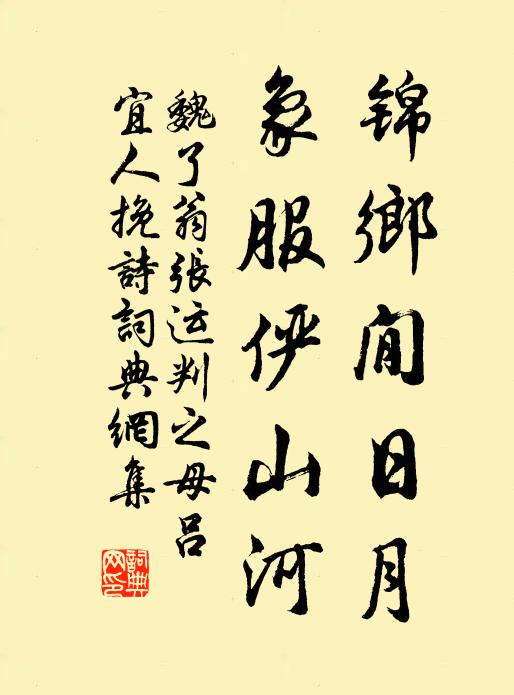 錦鄉閒日月
象服俨山河
魏了翁張运判之母呂
宜人挽詩詞典網集
詞典
网印